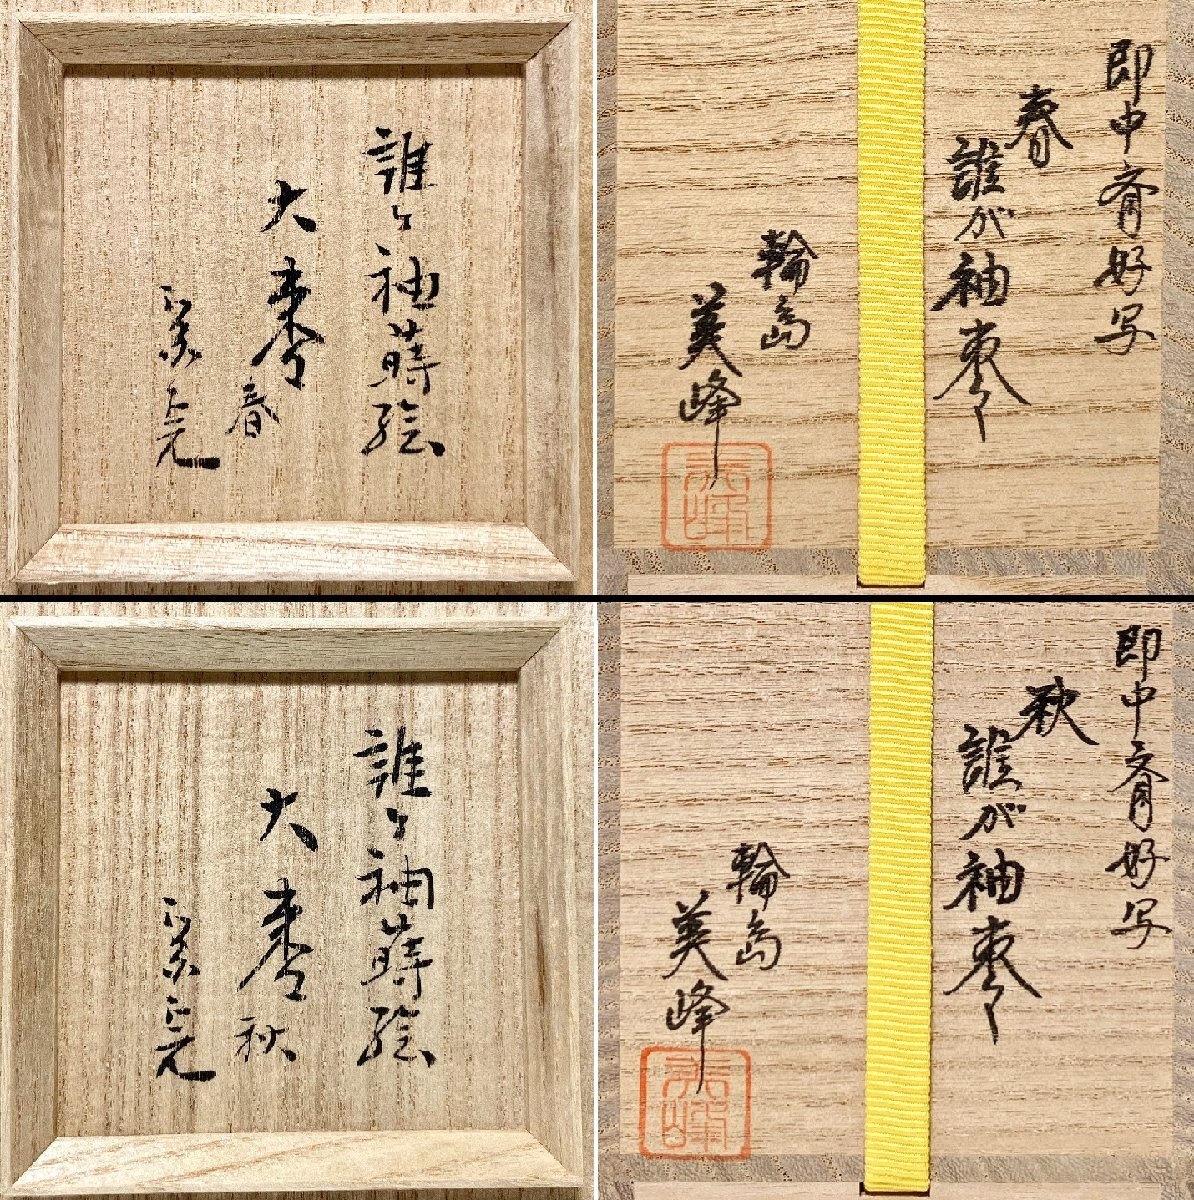 誰ヶ袖蒔絵
大棗
春
即中斎好写
春
誰が袖棗
輪島
美峰
美峰
誰ヶ袖蒔絵
大棗
秋
即中斎好写
秋
誰が袖棗
輪島
美峰
美峰